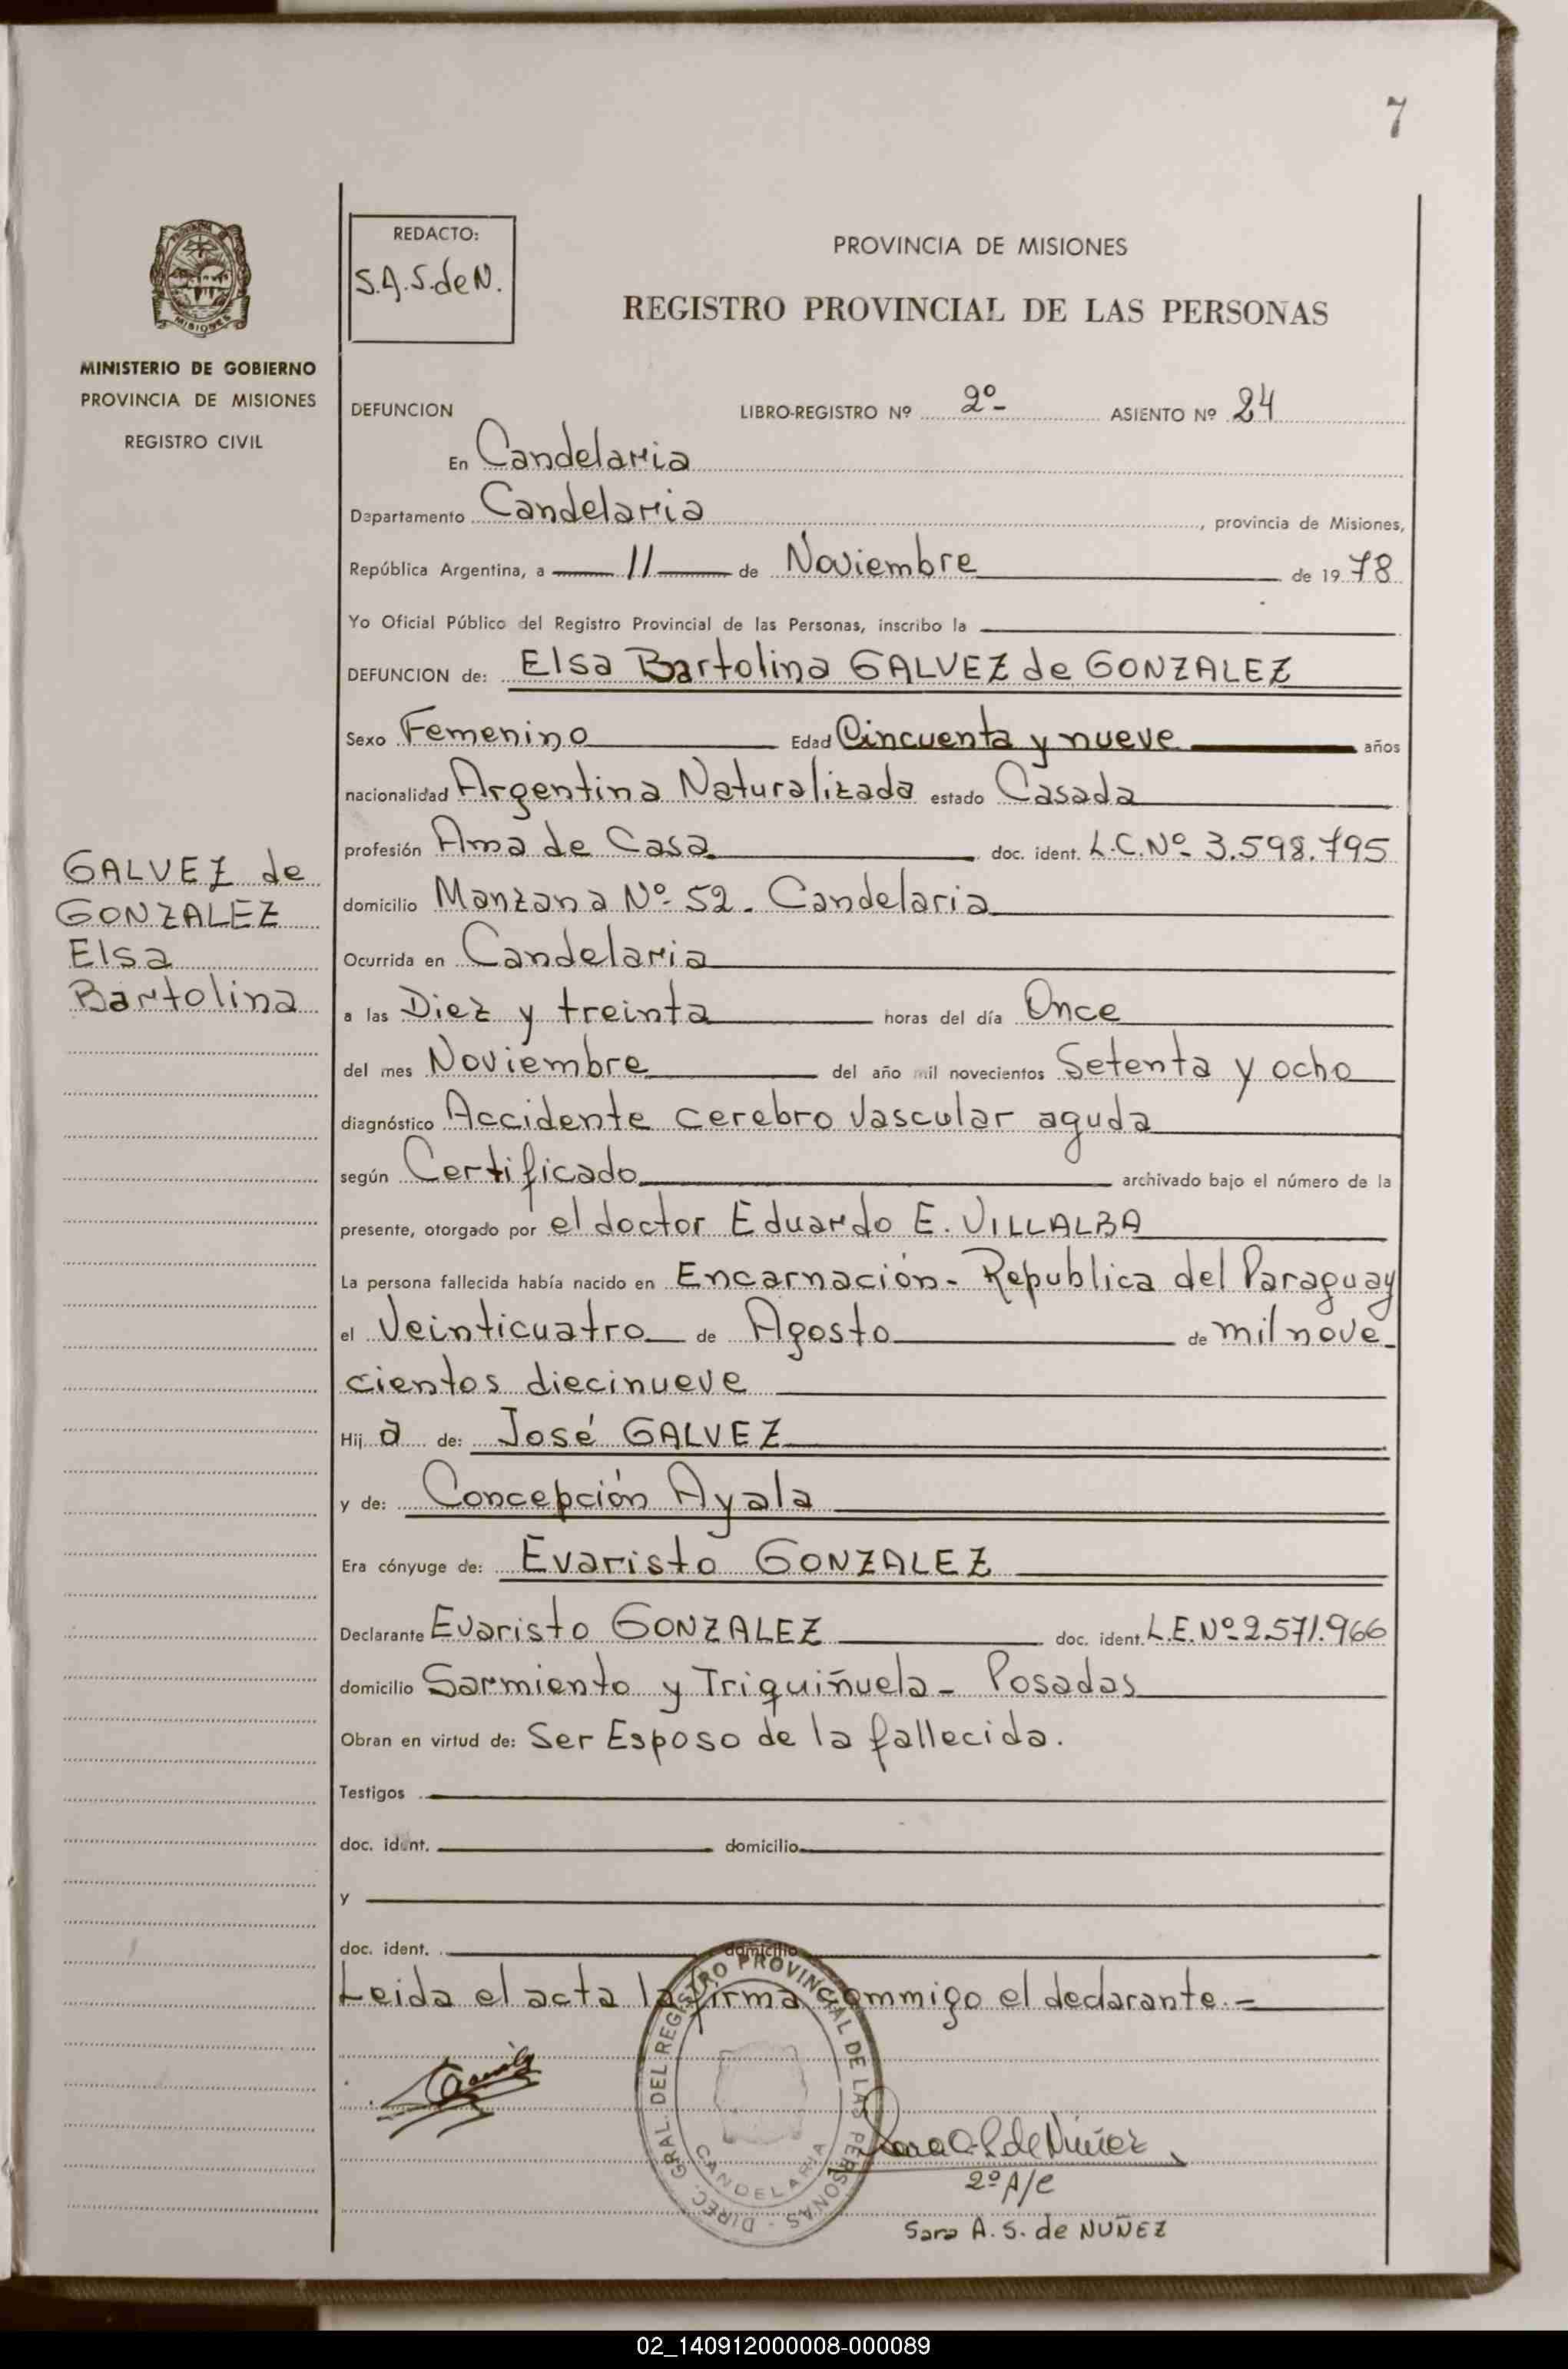 7
REDACTO:
S.A.S.deN.
PROVINCIA DE MISIONES
REGISTRO PROVINCIAL DE LAS PERSONAS
MISIONES
MINISTERIO DE GOBIERNO
PROVINCIA DE MISIONES
REGISTRO CIVIL
DEFUNCION LIBRO-REGISTRO Nº 2º- ASIENTO Nº 24
En Candelaria
Departamento Candelaria, provincia de Misiones,
República Argentina, a 11 de Noviembre de 1978
Yo Oficial Público del Registro Provincial de las Personas, inscribo la
DEFUNCION de: Elsa Bartolina GALVEZ de GONZALEZ
Sexo Femenino Edad Cincuenta y nueve años
nacionalidad Argentina Naturalizada estado Casada
profesión Ama de Casa doc. ident. L.C.Nº 3.598.795
domicilio Manzana Nº 52. Candelaria
Ocurrida en Candelaria
a las Diez y treinta horas del día Once
del mes Noviembre del año mil novecientos Setenta y ocho
diagnóstico Accidente cerebro vascular aguda
según Certificado archivado bajo el número de la
presente, otorgado por el doctor Eduardo E. VILLALBA
La persona fallecida había nacido en Encarnación- Republica del Paraguay
el Veinticuatro de Agosto de mil nove
cientos diecinueve
Hij a de: José GALVEZ
y de: Concepción Ayala
Era cónyuge de: Evaristo GONZALEZ
Declarante Evaristo GONZALEZ doc. ident. L.E.Nº 2.571.966
domicilio Sarmiento y Triquiñuela- Posadas
Obran en virtud de: Ser Esposo de la fallecida.
Testigos
doc. ident. domicilio
y
doc. ident. domicilio
Leida el acta la firma commigo el declarante.-
GALVEZ de
GONZALEZ
Elsa
Bartolina
DIREC. GRAL. DEL REGISTRO PROVINCIAL DE LAS PERSONAS -
CANDELARIA
Sara A. S. de Núñez
2º A/C
Sara A. S. de NUÑEZ
02_140912000008-000089